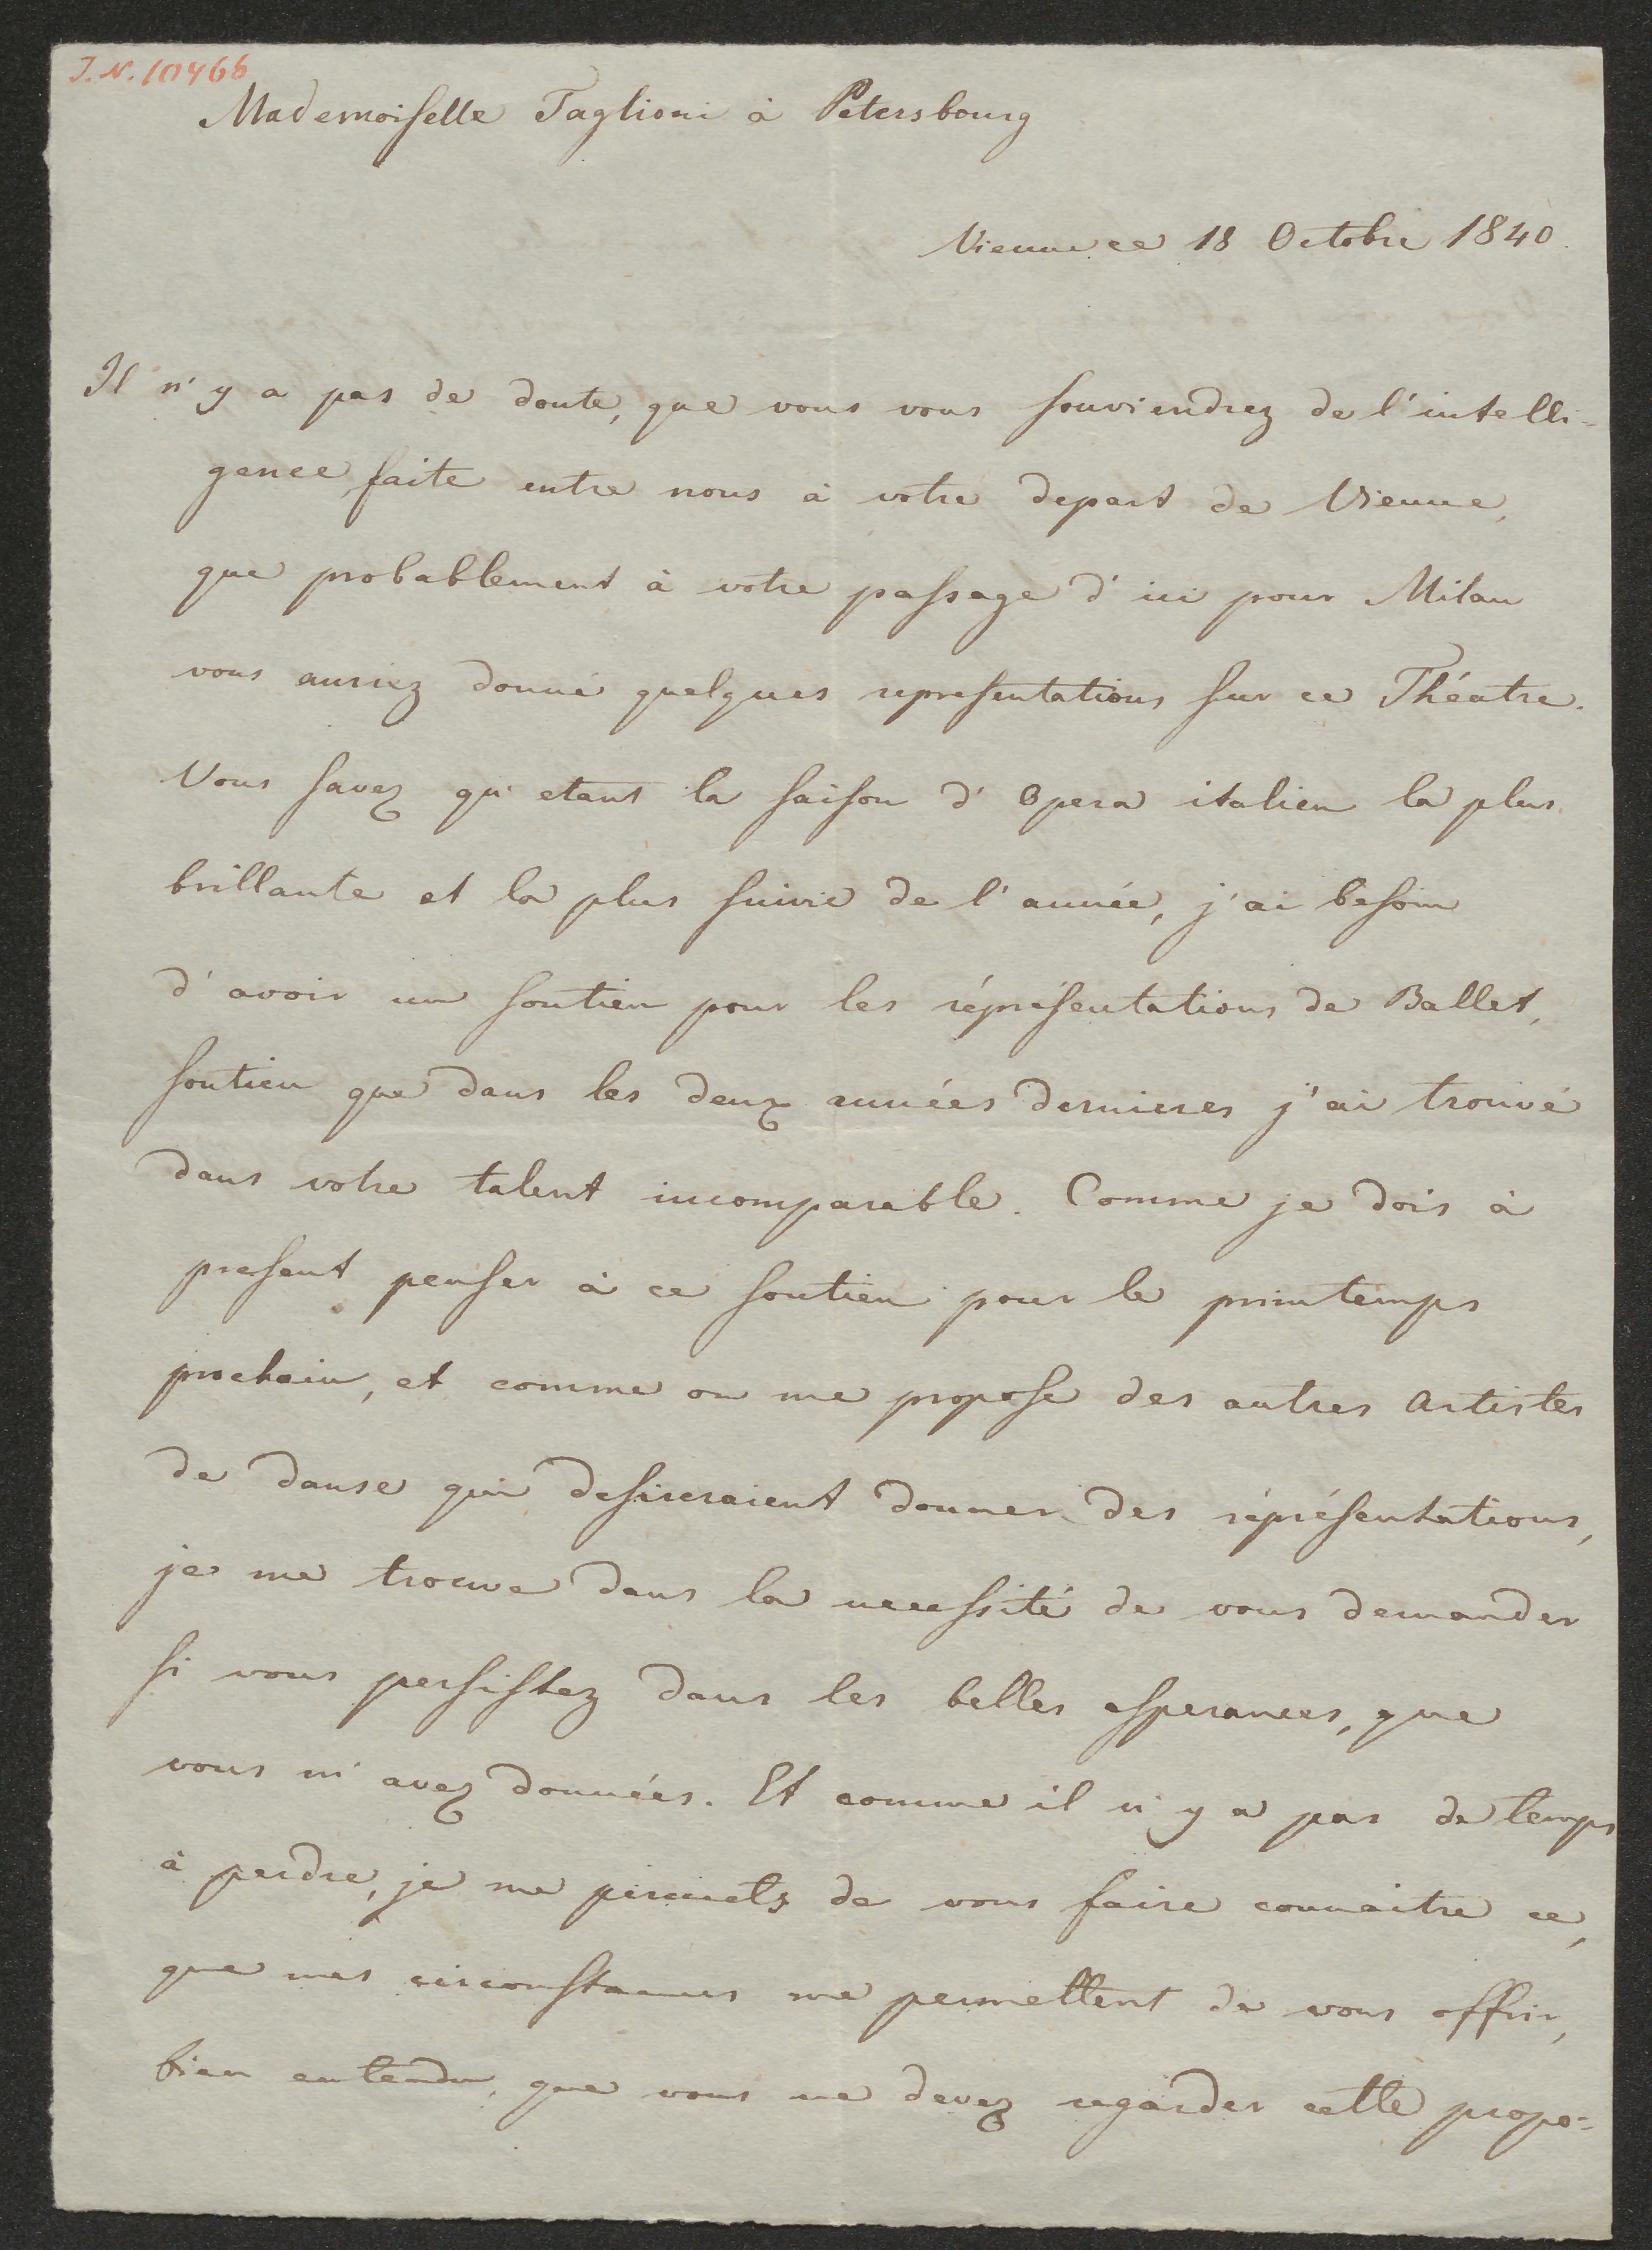 J.N. 10466
Mademoiselle Taglioni à Petersbourg
Vienne ce 18 Octobre 1840.
Il n'y a pas de doute, que vous vous souviendrez de l'intelli-
gence, faite entre nous à votre depart de Vienne,
que probablement à votre passage d'ici pour Milan
vous auriez donné quelques representations sur ce Théatre.
Vous savez qu'etant la saison d'Opera italien la plus
brillante et la plus suivie de l'année, j'ai besoin
d'avoir un soutien pour les réprésentations de Ballet,
soutien que dans les deux années dernieres j'ai trouvé
dans votre talent incomparable. Comme je dois à
present penser à ce soutien pour le printemps
prochain, et comme on me propose des autres artistes
de danse qui desireraient donner des réprésentations,
je me trouve dans la necessité de vous demander
si vous persistez dans les belles esperances, que
vous m'avez données. Et comme il n'y a pas de temps
à perdre, je me permets de vous faire connaitre ce,
que mes circonstances me permettent de vous offrir,
bien entendu, que vous ne devez regarder cette propo-